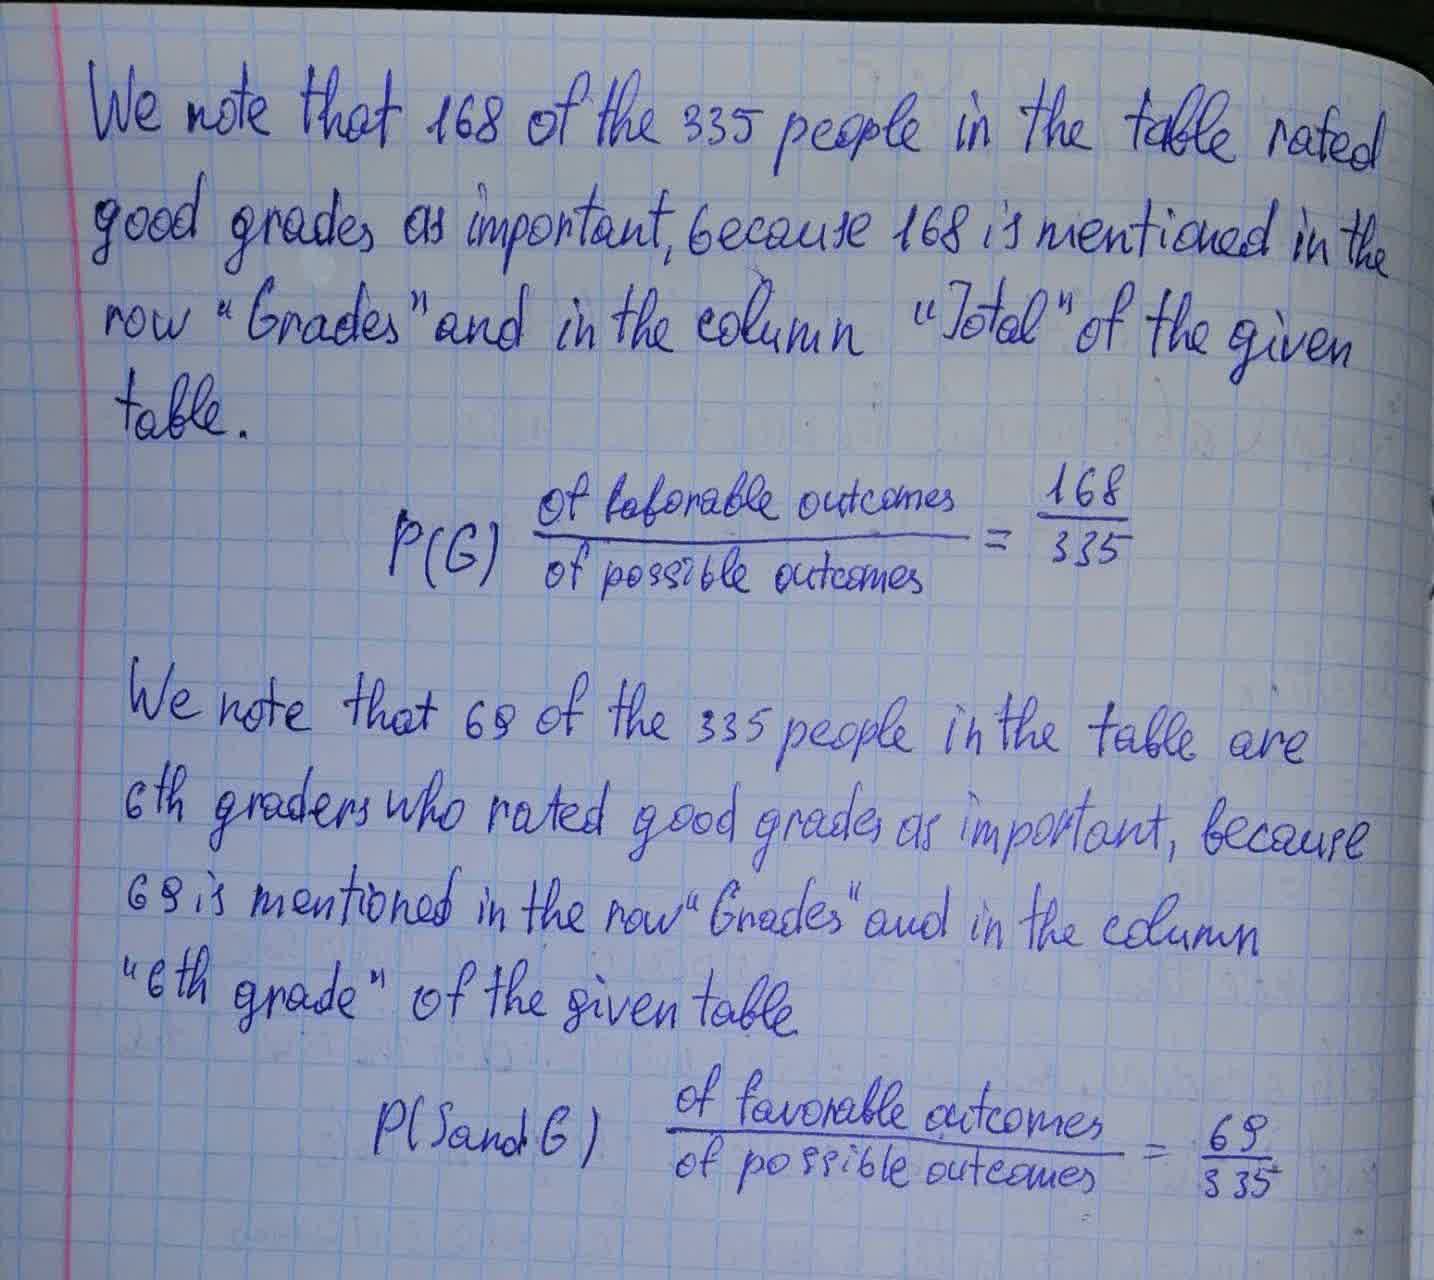 We note that 168 of the 335 people in the table rated
good grades as important, because 168 is mentioned in the
row "Grades" and in the column "Total" of the given
table.
P(G) of faforable outcomes / of possible outcomes = 168 / 335
We note that 69 of the 335 people in the table are
6th graders who rated good grades as important, because
69 is mentioned in the row "Grades" and in the column
"6th grade" of the given table
P(S and G) of favorable outcomes / of possible outcomes = 69 / 335